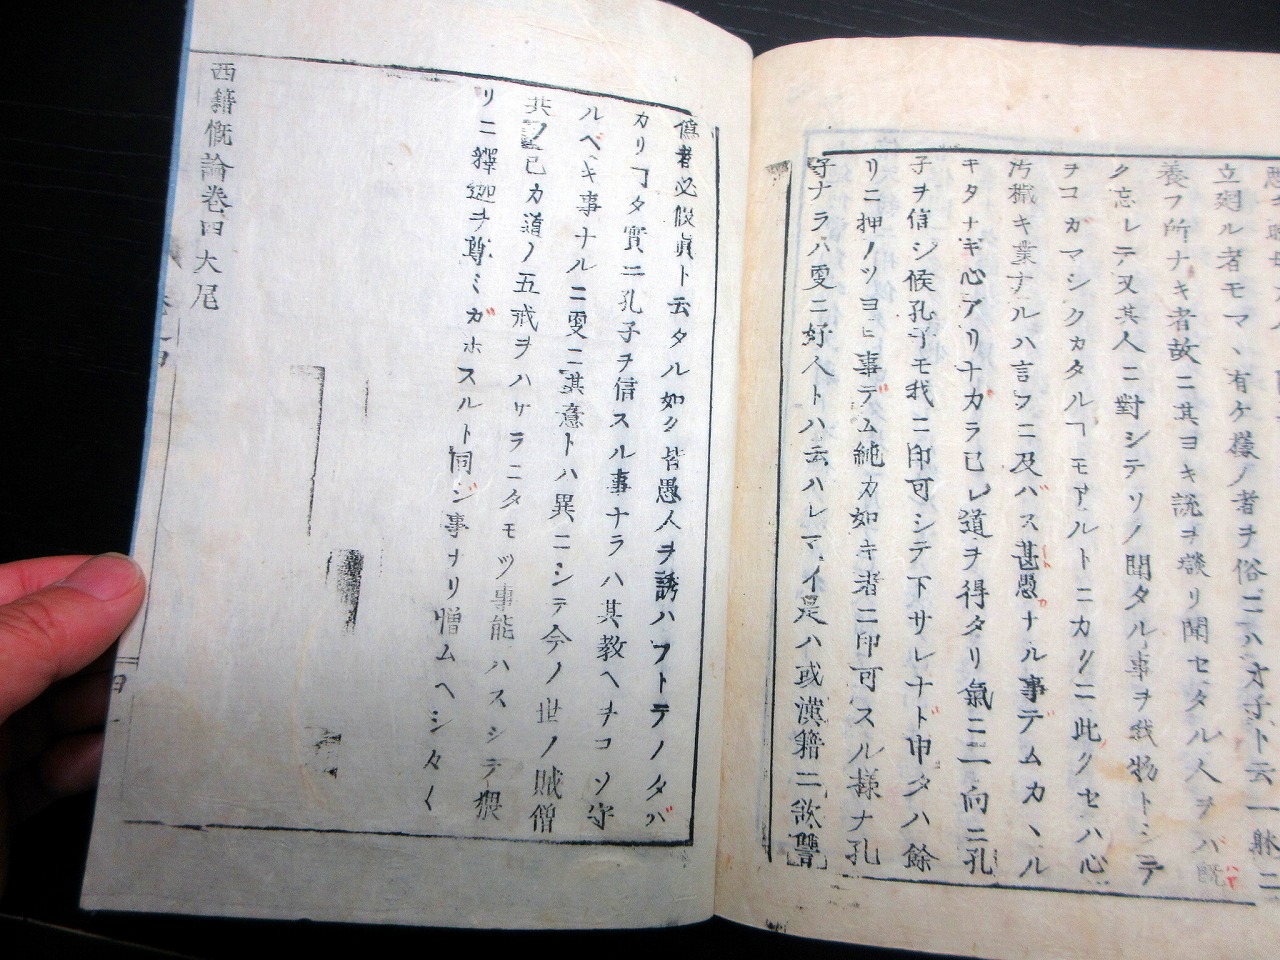 立廻ル者モマヽ有ケ樣ノ者ヲ俗ニハ才子ト云一躰ニ
養フ所ナキ者故ニ其ヨキ説ヲ談リ聞セタル人ヲバ既
ク忘レテ又其人ニ對シテソノ聞タル事ヲ我物トシテ
ヲコガマシクカタルヿモアルトニカクニ此クセハ心
汚穢キ業ナルハ言フニ及バス甚愚ナル事デムカヽル
キタナキ心アリナガラ已レ道ヲ得タリ氣ニ一向ニ孔
子ヲ信シ候孔子モ我ニ印可シテ下サレナド申タハ餘
リニ押ノツヨヒ事デム純カ如キ者ニ印可スル様ナ孔
子ナラハ更ニ好人トハ云ハレマイ是ハ或漢籍ニ欲讐
僞者必假眞ト云タル如ク皆愚人ヲ誘ハフトテノタバ
カリヿタ實ニ孔子ヲ信スル事ナラハ其教ヘヲコソ守
ルベキ事ナルニ更ニ其意トハ異ニシテ今ノ世ノ賊僧
共ノ已カ道ノ五戒ヲハサラニタモツ事能ハスシテ猥
リニ釋迦ヲ尊ミガホスルト同ジ事ナリ憎ムヘシ〱
西籍慨論巻四大尾